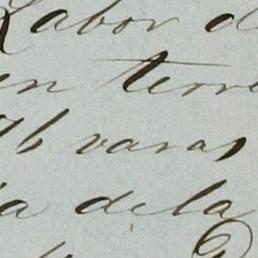 Labor de
en terre
76 varas
ia de la